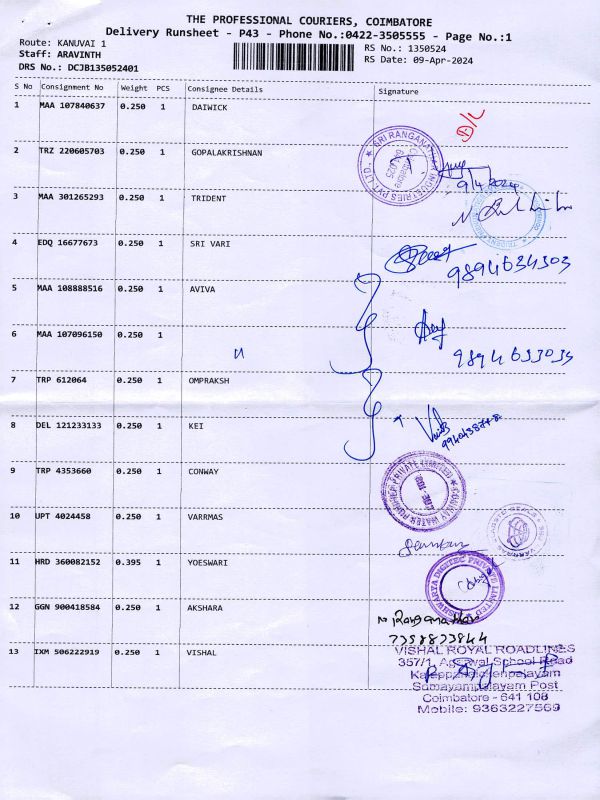 THE PROFESSIONAL COURIERS, COIMBATORE
Delivery Runsheet - P43 - Phone No.:0422-3505555 - Page No.:1
Route: KANUVAI 1
RS No.: 1350524
Staff: ARAVINTH
RS Date: 09-Apr-2024
DRS No.: DCJB135052401
S No Consignment No Weight PCS Consignee Details Signature
1 MAA 107840637 0.250 1 DAIWICK
D/L
2 TRZ 220605703 0.250 1 GOPALAKRISHNAN
SRI RANGANATHAR INDUSTRIES PVT. LTD.
9/4/2024
3 MAA 301265293 0.250 1 TRIDENT
4 EDQ 16677673 0.250 1 SRI VARI
9894634303
5 MAA 108888516 0.250 1 AVIVA
6 MAA 107096150 0.250 1
7 TRP 612064 0.250 1 OMPRAKSH
8 DEL 121233133 0.250 1 KEI
9 TRP 4353660 0.250 1 CONWAY
PRIVATE LIMITED
10 UPT 4024458 0.250 1 VARRMAS
11 HRD 360082152 0.395 1 YOESWARI
PRIVATE LIMITED
12 GGN 900418584 0.250 1 AKSHARA
13 IXM 506222919 0.250 1 VISHAL
VISHAL ROYAL ROADLINES
357/1, Agarwal School Road
Samayampalayam Post
Coimbatore - 641 108
Mobile: 9363227569